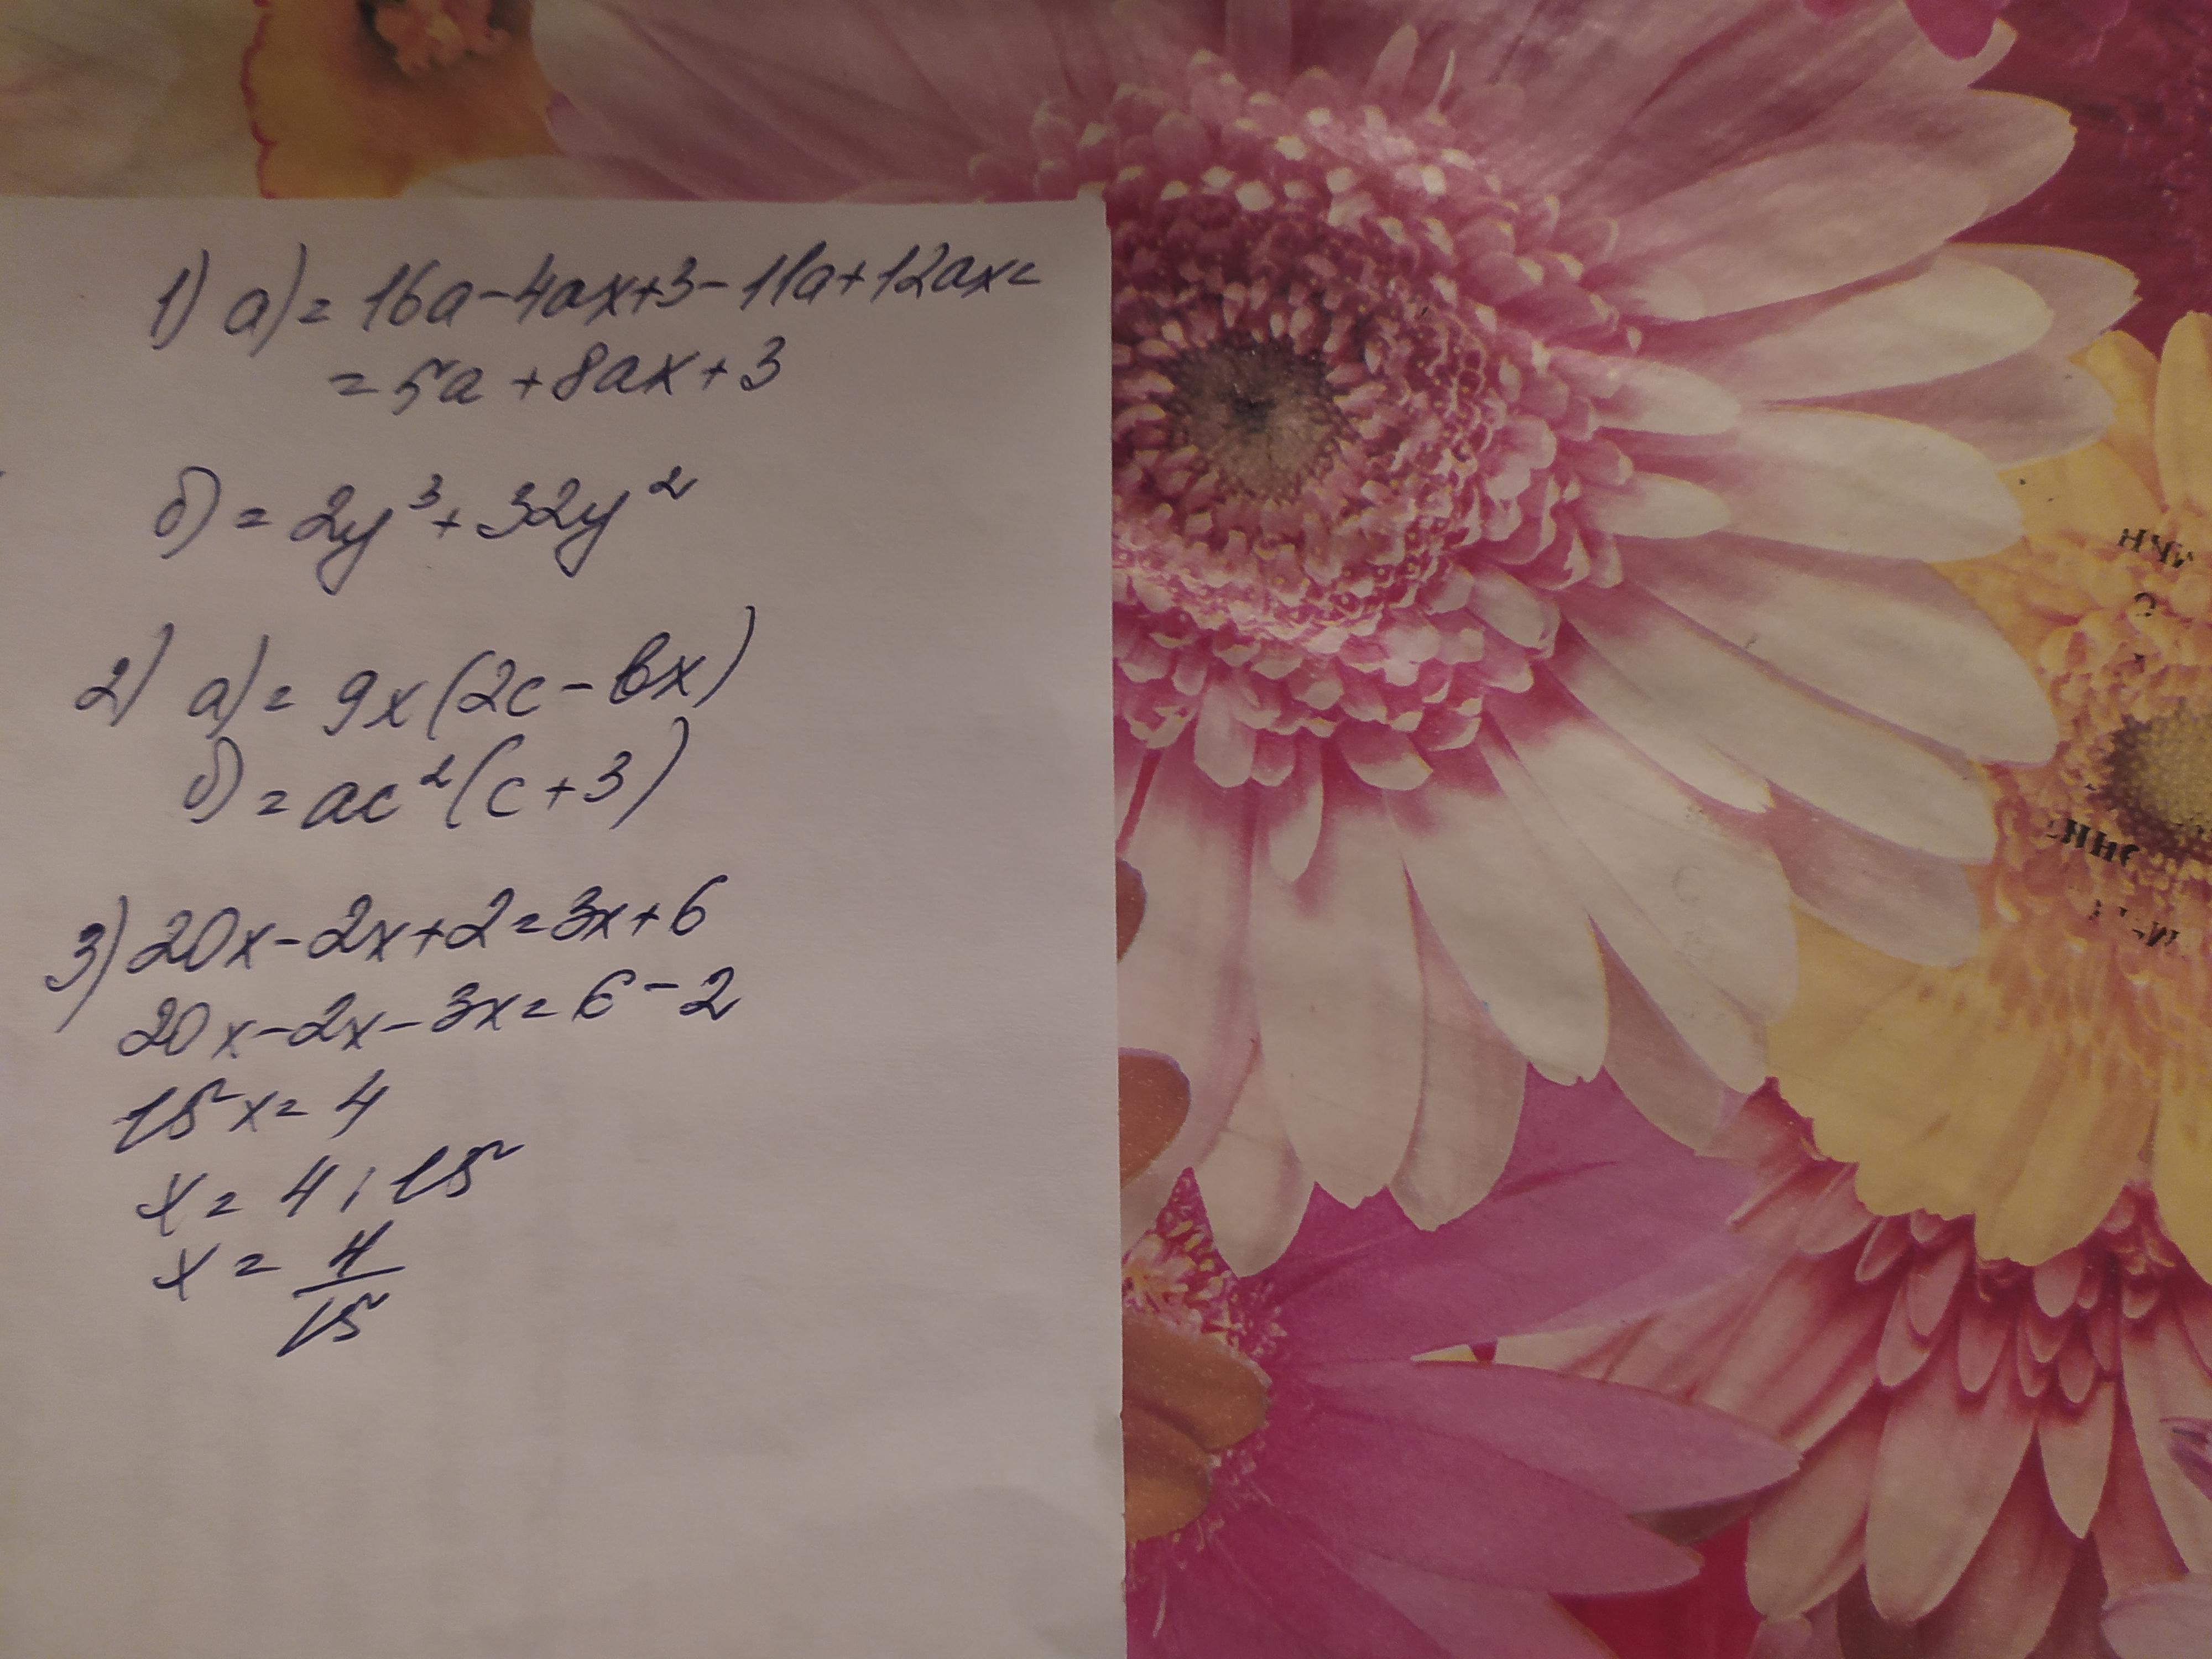 1) а) = 16a - 4ax + 3 - 11a + 12ax =
= 5a + 8ax + 3
б) = 2y³ + 32y²
2) а) = 9x(2c - bx)
б) = ac²(c + 3)
3) 20x - 2x + 2 = 3x + 6
20x - 2x - 3x = 6 - 2
15x = 4
x = 4 : 15
x = 4/15